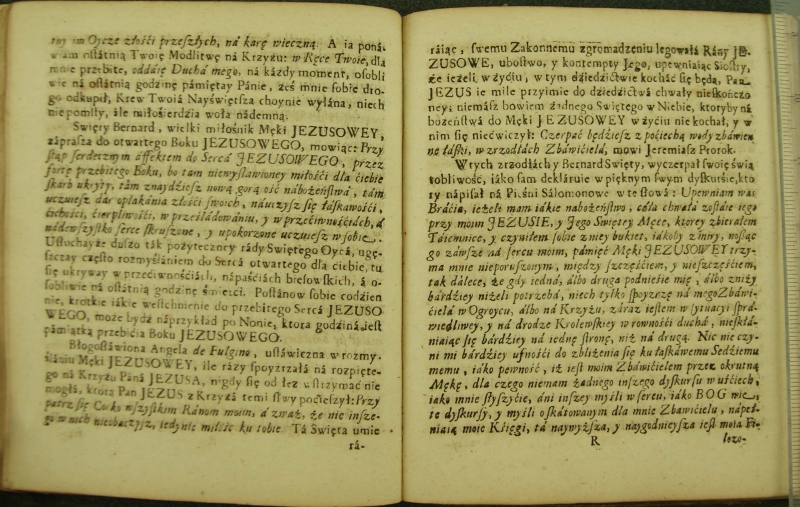 Oycze złośći przeszłych, ná karę wieczną. A ia poná-
ostátnią Twoię Modlitwę ná Krzyżu: w Ręce Twoie, dla
mnie przebite, oddaię Duchá mego, ná káżdy moment, osobli
wie ná ostátnią godzinę pámiętay Pánie, żeś mnie sobie dro-
go odkupił, Krew Twoiá Nayświętsza choynie wylána, niech
niepomsty, ále miłośierdzia woła nádemną.
Swięty Bernard, wielki miłośnik Męki JEZUSOWEY,
záprasza do otwartego Boku JEZUSOWEGO, mowiące: Przy
stąp serdecznym áffektem do Sercá JEZUSOWEGO, przez
fortę przebitego Boku, bo tam niewysławioney miłośći dla ćiebie
skarb ukryty, tám znaydźiesz nową gorą ość nabożeństwá, tám
uczuiesz dar opłákánia złośći swoich, náuczysz się łáskáwośći,
ćichośći, ćierpliwośći, w prześládowániu, y w przećiwnośćiách, á
nádewszystko serce skruszone, y upokorzone uczuiesz w sobie.
Usłuchayże duszo ták pożyteczney rády Swiętego Oycá, uczę-
szczay często rozmyślániem do Sercá otwartego dla ćiebie, tu
się ukryway w przećiwnośćiách, nápáśćiách biesowskich, á o-
sobliwie ná ostátnią godzinę śmierći. Postánow sobie codzien
nie, krotkie iákie westchnienie do przebitego Sercá JEZUSO
WEGO, może bydź náprzykład po Nonie, ktora godziná iest
pámiątką przebićia Boku JEZUSOWEGO.
Błogosłáwiona Angela de Fulgino, ustáwiczna w rozmy-
śłániu Męki JEZUSOWEY, ile rázy spoyzrzáłá ná rozpięte-
go ná Krzyżu Páná JEZUSA, nigdy się od łez wstrzymáć nie
mogłá, ktorą Pan JEZUS z Krzyżá temi słwy poćieszył: Przy
pátrz się Corko wszystkim Ránom moim, á zważ, że nic insze-
go w nich nieobaczysz, iedynie miłość ku tobie. Tá Swięta umie
rá-
ráiąc, swemu Zakonnemu zgromadzeniu legowáłá Rány JE-
ZUSOWE, ubostwo, y kontempty Jego, upewniáiąc Siostry,
że ieżeli w żyćiu, w tym dźiedźictwie kocháć się będą, Pan
JEZUS ie mile przyimie do dźiedźictwá chwały nieskończo
ney; niemász bowiem żadnego Swiętego w Niebie, ktoryby ná
bożeństwá do Męki JEZUSOWEY w żyćiu nie kochał, y w
nim się niećwiczył: Czerpáć będźiesz z poćiechą wody zbáwien
ne łáski, w zrzodłách Zbáwićielá, mowi Jeremiasz Prorok.
W tych zrzodłách y Bernard Swięty, wyczerpał swoię świą
tobliwość, iáko sam dekláruie w pięknym swym dyskurśie, kto
ry nápisał ná Pieśni Sálomonowe w te słowá: Upewniam was
Bráćia, ieżeli mam iákie nabożeństwo, cáłá chwałá zostáie tego
przy moim JEZUSIE, y Jego Swiętey Męce, ktorey zbierałem
Táiemnice, y czyniłem sobie z niey bukiet, iákoby z miry, nosząc
go záwsze ná sercu moim, pámięć Męki JEZUSOWEY trzy-
ma mnie nieporuszonym, między szczęśćiem, y nieszczęśćiem,
ták dálece, że gdy iedná, álbo druga podnieśie mię, álbo zniży
bárdźiey niżeli potrzebá, niech tylko spoyzrzę ná mego Zbáwi-
ćielá w Ogroycu, álbo ná Krzyżu, záraz iestem w sytuácyi sprá-
wiedliwey, y ná drodze Krolewskiey w rownośći duchá, nieskłá-
niáiąc się bárdźiey ná iednę stronę, niż ná drugą. Nic nie czy-
ni mi bárdźiey ufnośći do zbliżenia się ku łáskáwemu Sedźiemu
memu, iáko pewność, iż iest moim Zbáwićielem przez okrutną
Mękę, dla czego niemam żadnego inszego dyskursu w uśćiech,
iáko mnie słyszyćie, áni inszey myśli w sercu, iáko BOG wie,
te dyskursy, y myśli o skátowanym dla mnie Zbáwićielu, nápeł-
niáią moie Kśięgi, tá naywyższa, y naygodnieysza iest moiá Fi-
R
lozo-